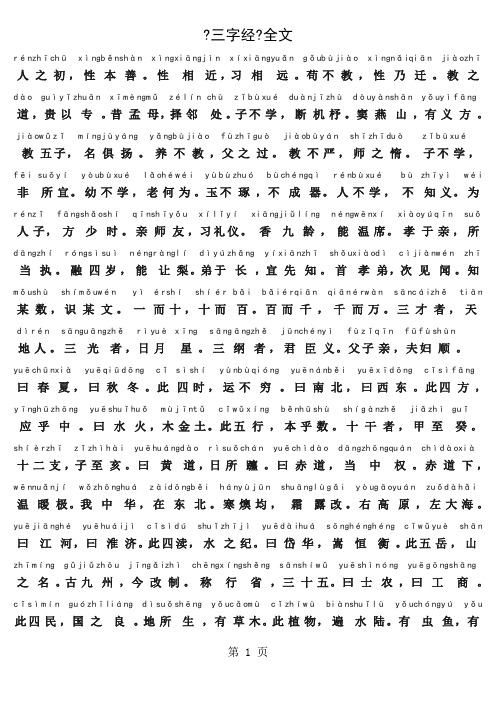 ?三字经?全文
rénzhīchū xìngběnshàn xìngxiāngjìn xíxiāngyuǎn gǒubùjiào xìngnǎiqiān jiàozhī
人之初，性本善。性 相近，习相 远。苟不教，性乃迁。教之
dào guìyǐzhuān xīmèngmǔ zélín chù zǐbùxué duànjīzhù dòuyànshān yǒuyìfāng
道，贵以专。昔孟母，择邻 处。子不学，断机杼。窦燕山，有义方。
jiàowǔzǐ míngjùyáng yǎngbùjiào fùzhīguò jiàobùyán shīzhīduò zǐbùxué
教五子，名俱扬。养不教，父之过。教不严，师之惰。子不学，
fēi suǒyí yòubùxué lǎohéwéi yùbùzhuó bùchéngqì rénbùxué bù zhīyì wéi
非 所宜。幼不学，老何为。玉不琢，不成器。人不学，不知义。为
rénzǐ fāngshǎoshí qīnshīyǒu xílǐyí xiāngjiǔlíng néngwēnxí xiàoyúqīn suǒ
人子，方少时。亲师友，习礼仪。香九龄，能温席。孝于亲，所
dāngzhí róngsìsuì néngrànglí dìyúzhǎng yíxiānzhī shǒuxiàodì cìjiànwén zhī
当执。融四岁，能让梨。弟于长，宜先知。首孝弟，次见闻。知
mǒushù shímǒuwén yì érshí shíér bǎi bǎiérqiān qiānérwàn sāncáizhě tiān
某数，识某文。一而十，十而百。百而千，千而万。三才者，天
dìrén sānguāngzhě rìyuè xīng sāngāngzhě jūnchényì fùzǐqīn fūfùshùn
地人。三光者，日月 星。三纲者，君臣义。父子亲，夫妇顺。
yuēchūnxià yuēqiūdōng cǐ sìshí yùnbùqióng yuēnánběi yuēxīdōng cǐsìfāng
曰春夏，曰秋冬。此四时，运不穷。曰南北，曰西东。此四方，
yīnghūzhōng yuēshuǐhuǒ mùjīntǔ cǐwǔxíng běnhūshù shígànzhě jiǎzhì guǐ
应乎中。曰水火，木金土。此五行，本乎数。十干者，甲至癸。
shíèrzhī zǐzhìhài yuēhuángdào rìsuǒchán yuēchìdào dāngzhōngquán chìdàoxià
十二支，子至亥。曰黄道，日所躔。曰赤道，当中权。赤道下，
wēnnuǎnjí wǒzhōnghuá zàidōngběi hányùjūn shuānglùgǎi yòugāoyuán zuǒdàhǎi
温暖极。我中华，在东北。寒燠均，霜露改。右高原，左大海。
yuējiānghé yuēhuáijì cǐsìdú shuǐzhījì yuēdàihuá sōnghénghéng cǐwǔyuè shān
曰江河，曰淮济。此四渎，水之纪。曰岱华，嵩恒衡。此五岳，山
zhīmíng gǔjiǔzhōu jīngǎizhì chēngxíngshěng sānshíwǔ yuēshìnóng yuēgōngshāng
之名。古九州，今改制。称行省，三十五。曰士农，曰工商。
cǐsìmín guózhīliáng dìsuǒshēng yǒucǎomù cǐzhíwù biànshuǐlù yǒuchóngyú yǒu
此四民，国之良。地所生，有草木。此植物，遍水陆。有虫鱼，有
第 1 页